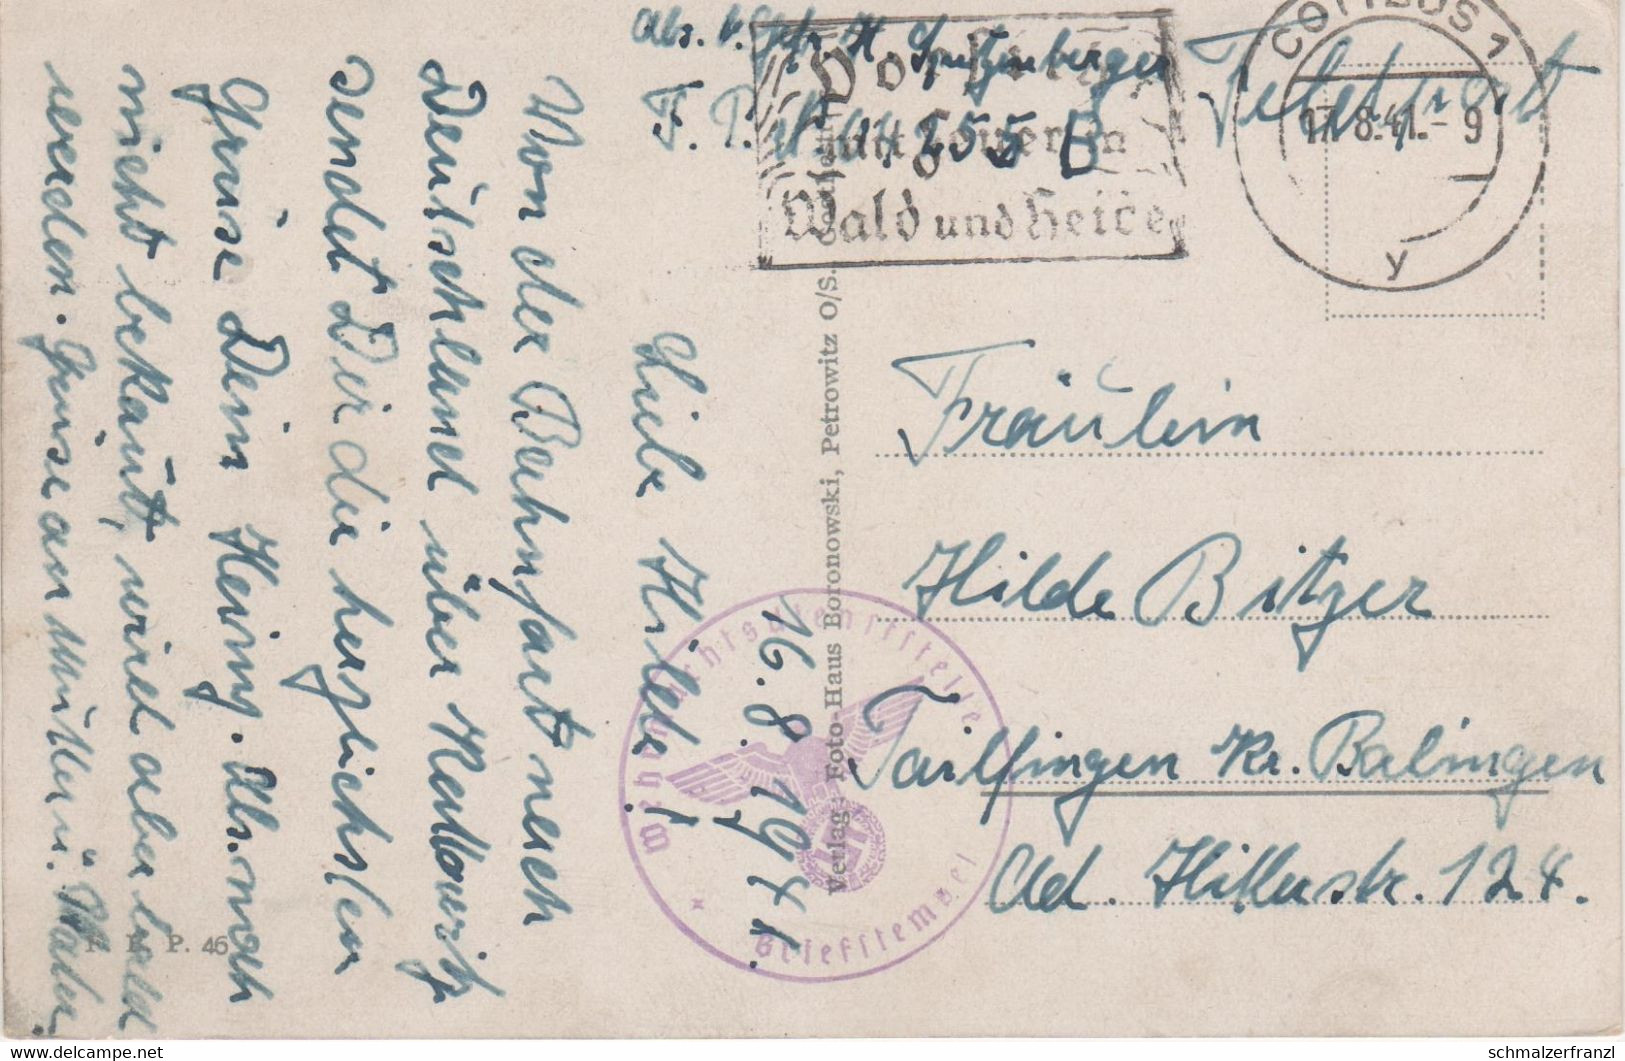 Abs. O.Gefr. H. Spitzenberger
F. P. 255 B
Feldpost
COTTBUS 1
17.8.41.- 9
y
Vorsicht
mit Feuer in
Wald und Heide
16.8.1941.
Liebe Hilde!
Von der Bahnfart nach
Deutschland über
sendet Dir die herzlichsten
Grüsse Dein Heinz. Abs. noch
nicht bekannt, wird aber bald
werden. Grüsse an Mutter u. Vater
Fräulein
Hilde Bitzer
Tailfingen Kr. Balingen
Ad. Hitlerstr. 124.
Wehrmachtsdienststelle
Briefstempel
Verlag: Foto-Haus Boronowski, Petrowitz O/S.
P. 46
www.delcampe.net
schmalzerfranzl